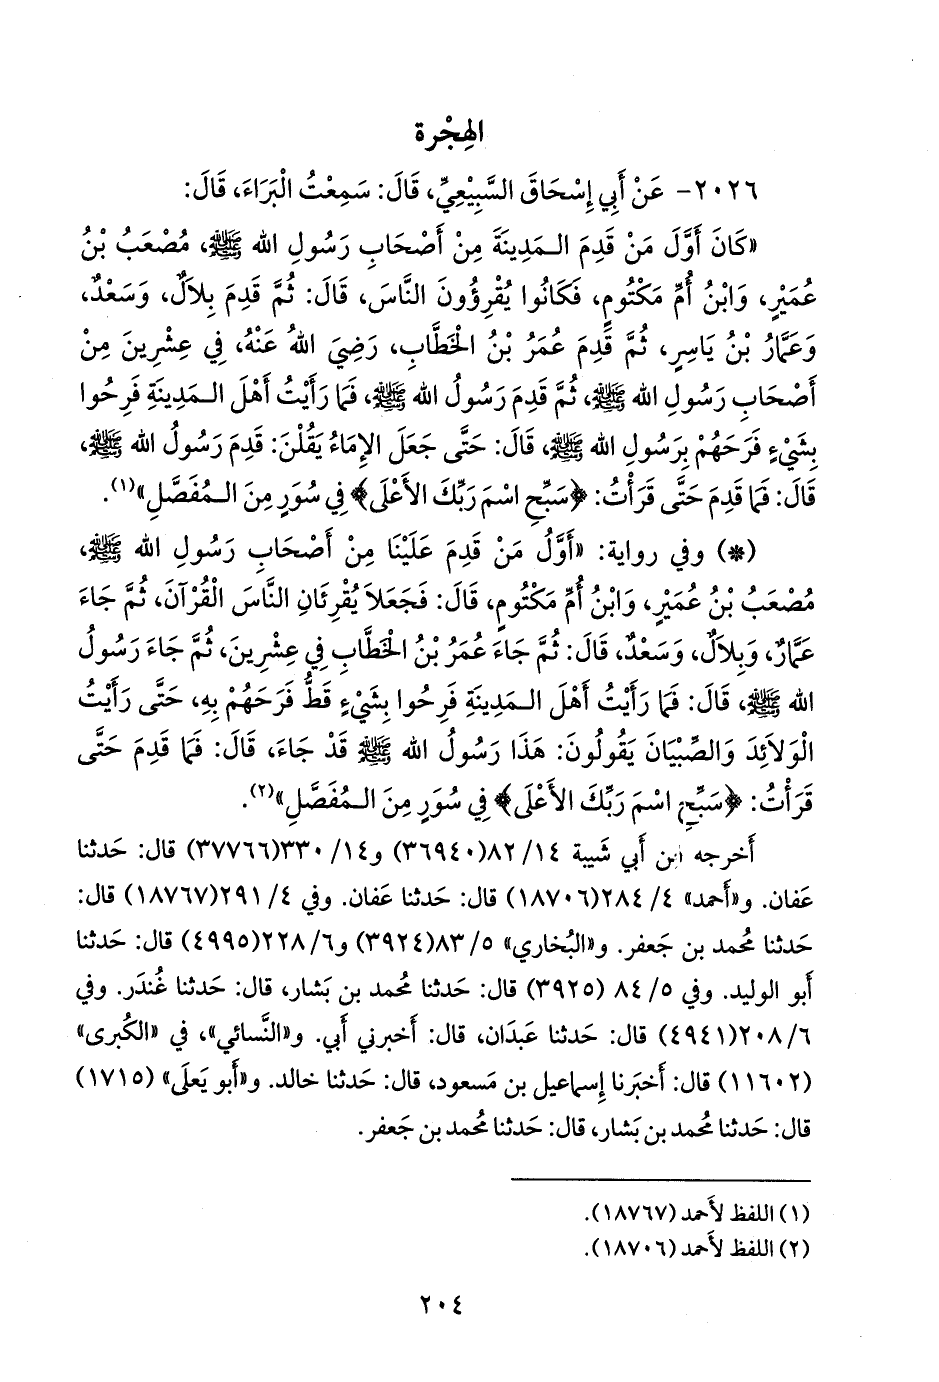 الهِجْرة
٢٠٢٦- عَنْ أَبِي إِسْحَاقَ السَّبِيْعِيِّ، قَالَ: سَمِعْتُ الْبَرَاءَ، قَالَ:
«كَانَ أَوَّلَ مَنْ قَدِمَ الـمَدِينَةَ مِنْ أَصْحَابِ رَسُولِ الله ﷺ، مُصْعَبُ بْنُ
عُمَيْرٍ، وَابْنُ أُمِّ مَكْتُومٍ، فَكَانُوا يُقْرِؤُونَ النَّاسَ، قَالَ: ثُمَّ قَدِمَ بِلاَلٌ، وَسَعْدٌ،
وَعَمَّارُ بْنُ يَاسِرٍ، ثُمَّ قَدِمَ عُمَرُ بْنُ الْخَطَّابِ، رَضِيَ اللهُ عَنْهُ، فِي عِشْرِينَ مِنْ
أَصْحَابِ رَسُولِ الله ﷺ، ثُمَّ قَدِمَ رَسُولُ الله ﷺ، فَمَا رَأَيْتُ أَهْلَ الـمَدِينَةِ فَرِحُوا
بِشَيْءٍ فَرَحَهُمْ بِرَسُولِ الله ﷺ، قَالَ: حَتَّى جَعَلَ الإِمَاءُ يَقُلْنَ: قَدِمَ رَسُولُ الله ﷺ،
قَالَ: فَمَا قَدِمَ حَتَّى قَرَأْتُ: ﴿سَبِّحِ اسْمَ رَبِّكَ الأَعْلَى﴾ فِي سُوَرٍ مِنَ الـمُفَصَّلِ»(١).
(*) وفي رواية: «أَوَّلُ مَنْ قَدِمَ عَلَيْنَا مِنْ أَصْحَابِ رَسُولِ الله ﷺ،
مُصْعَبُ بْنُ عُمَيْرٍ، وَابْنُ أُمِّ مَكْتُومٍ، قَالَ: فَجَعَلاَ يُقْرِئَانِ النَّاسَ الْقُرْآنَ، ثُمَّ جَاءَ
عَمَّارٌ، وَبِلاَلٌ، وَسَعْدٌ، قَالَ: ثُمَّ جَاءَ عُمَرُ بْنُ الْخَطَّابِ فِي عِشْرِينَ، ثُمَّ جَاءَ رَسُولُ
الله ﷺ، قَالَ: فَمَا رَأَيْتُ أَهْلَ الـمَدِينَةِ فَرِحُوا بِشَيْءٍ قَطُّ فَرَحَهُمْ بِهِ، حَتَّى رَأَيْتُ
الْوَلاَئِدَ وَالصِّبْيَانَ يَقُولُونَ: هَذَا رَسُولُ الله ﷺ قَدْ جَاءَ، قَالَ: فَمَا قَدِمَ حَتَّى
قَرَأْتُ: ﴿سَبِّحِ اسْمَ رَبِّكَ الأَعْلَى﴾ فِي سُوَرٍ مِنَ الـمُفَصَّلِ»(٢).
أَخرجه ابن أَبي شَيبة ١٤/ ٨٢(٣٦٩٤٠) و١٤/ ٣٣٠(٣٧٧٦٦) قال: حَدثنا
عَفان. و«أَحمد» ٤/ ٢٨٤(١٨٧٠٦) قال: حَدثنا عَفان. وفي ٤/ ٢٩١(١٨٧٦٧) قال:
حَدثنا مُحمد بن جَعفر. و«البُخاري» ٥/ ٨٣(٣٩٢٤) و٦/ ٢٢٨(٤٩٩٥) قال: حَدثنا
أَبو الوليد. وفي ٥/ ٨٤ (٣٩٢٥) قال: حَدثنا مُحمد بن بَشار، قال: حَدثنا غُندَر. وفي
٦/ ٢٠٨(٤٩٤١) قال: حَدثنا عَبدَان، قال: أَخبرني أَبي. و«النَّسائي»، في «الكُبرى»
(١١٦٠٢) قال: أَخبَرنا إِسماعيل بن مَسعود، قال: حَدثنا خالد. و«أَبو يَعلَى» (١٧١٥)
قال: حَدثنا مُحمد بن بَشار، قال: حَدثنا مُحمد بن جَعفر.
(١) اللفظ لأَحمد (١٨٧٦٧).
(٢) اللفظ لأَحمد (١٨٧٠٦).
٢٠٤